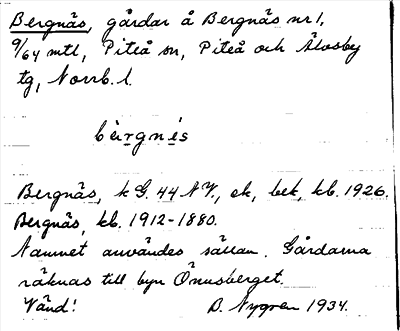 Bergnäs, gårdar å Bergnäs nr 1,
9/64 mtl, Piteå sn, Piteå och Älvsby
tg, Norrb. l.
bèrgnés
Bergnäs, k G. 44 N V., ek, bek, kb. 1926.
Bergnäs, kb. 1912-1880.
Namnet användes sällan. Gårdarna
räknas till byn Önusberget.
Vänd! D. Nygren 1934.